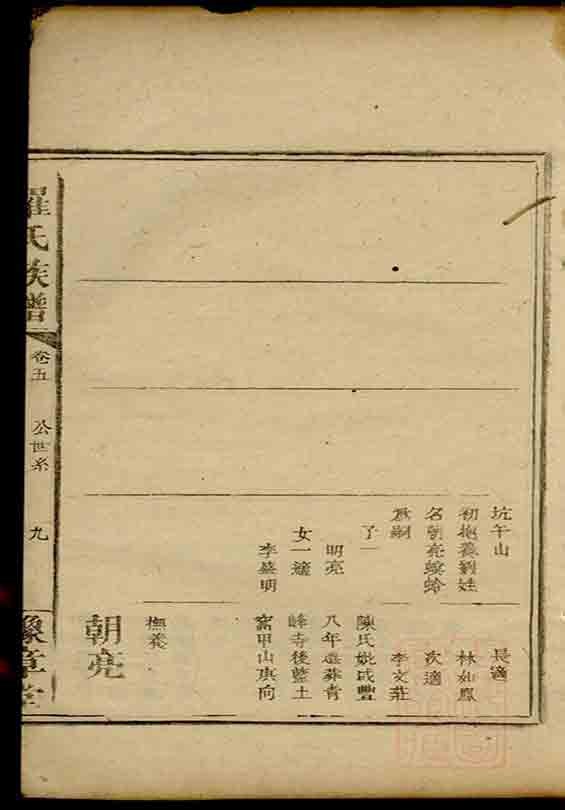 坑午山
初抱養劉姓
名朝亮螟蛉
為嗣
子一
明亮
女一適
李盛明
長適
林如鳳
次適
李文莊
陳氏妣咸豐
八年
峰寺後藍土
窩甲山庚向
撫養
朝亮
羅氏族譜
卷五
公世系
九
豫章堂